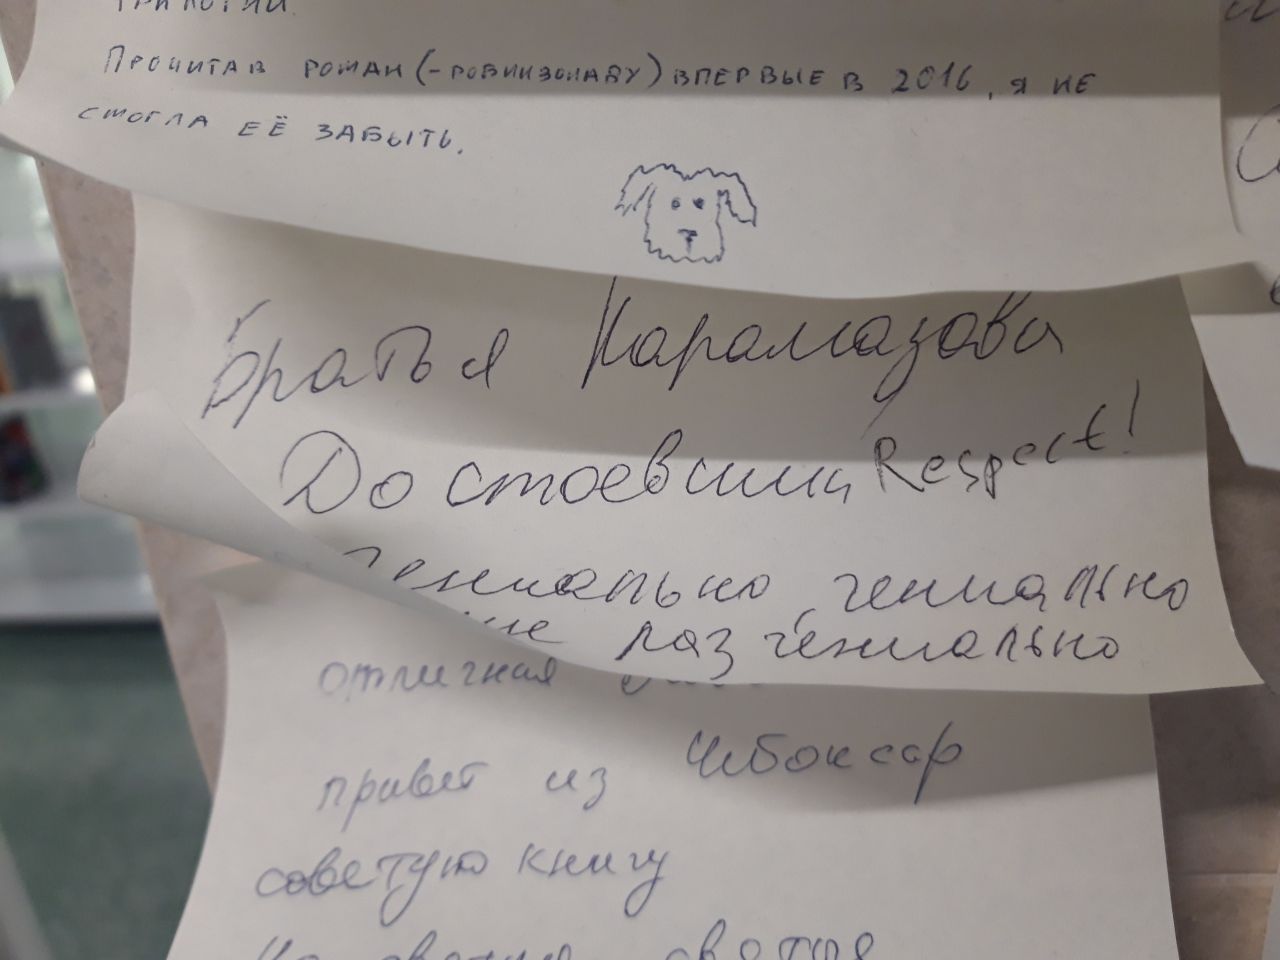 трилогии.
Прочитав роман (-робинзонаду) впервые в 2016, я не
смогла её забыть.
Братья Карамазовы
Достоевский Respect!
гениально, гениально
ще раз гениально
отличная
привет из Чебоксар
советую книгу